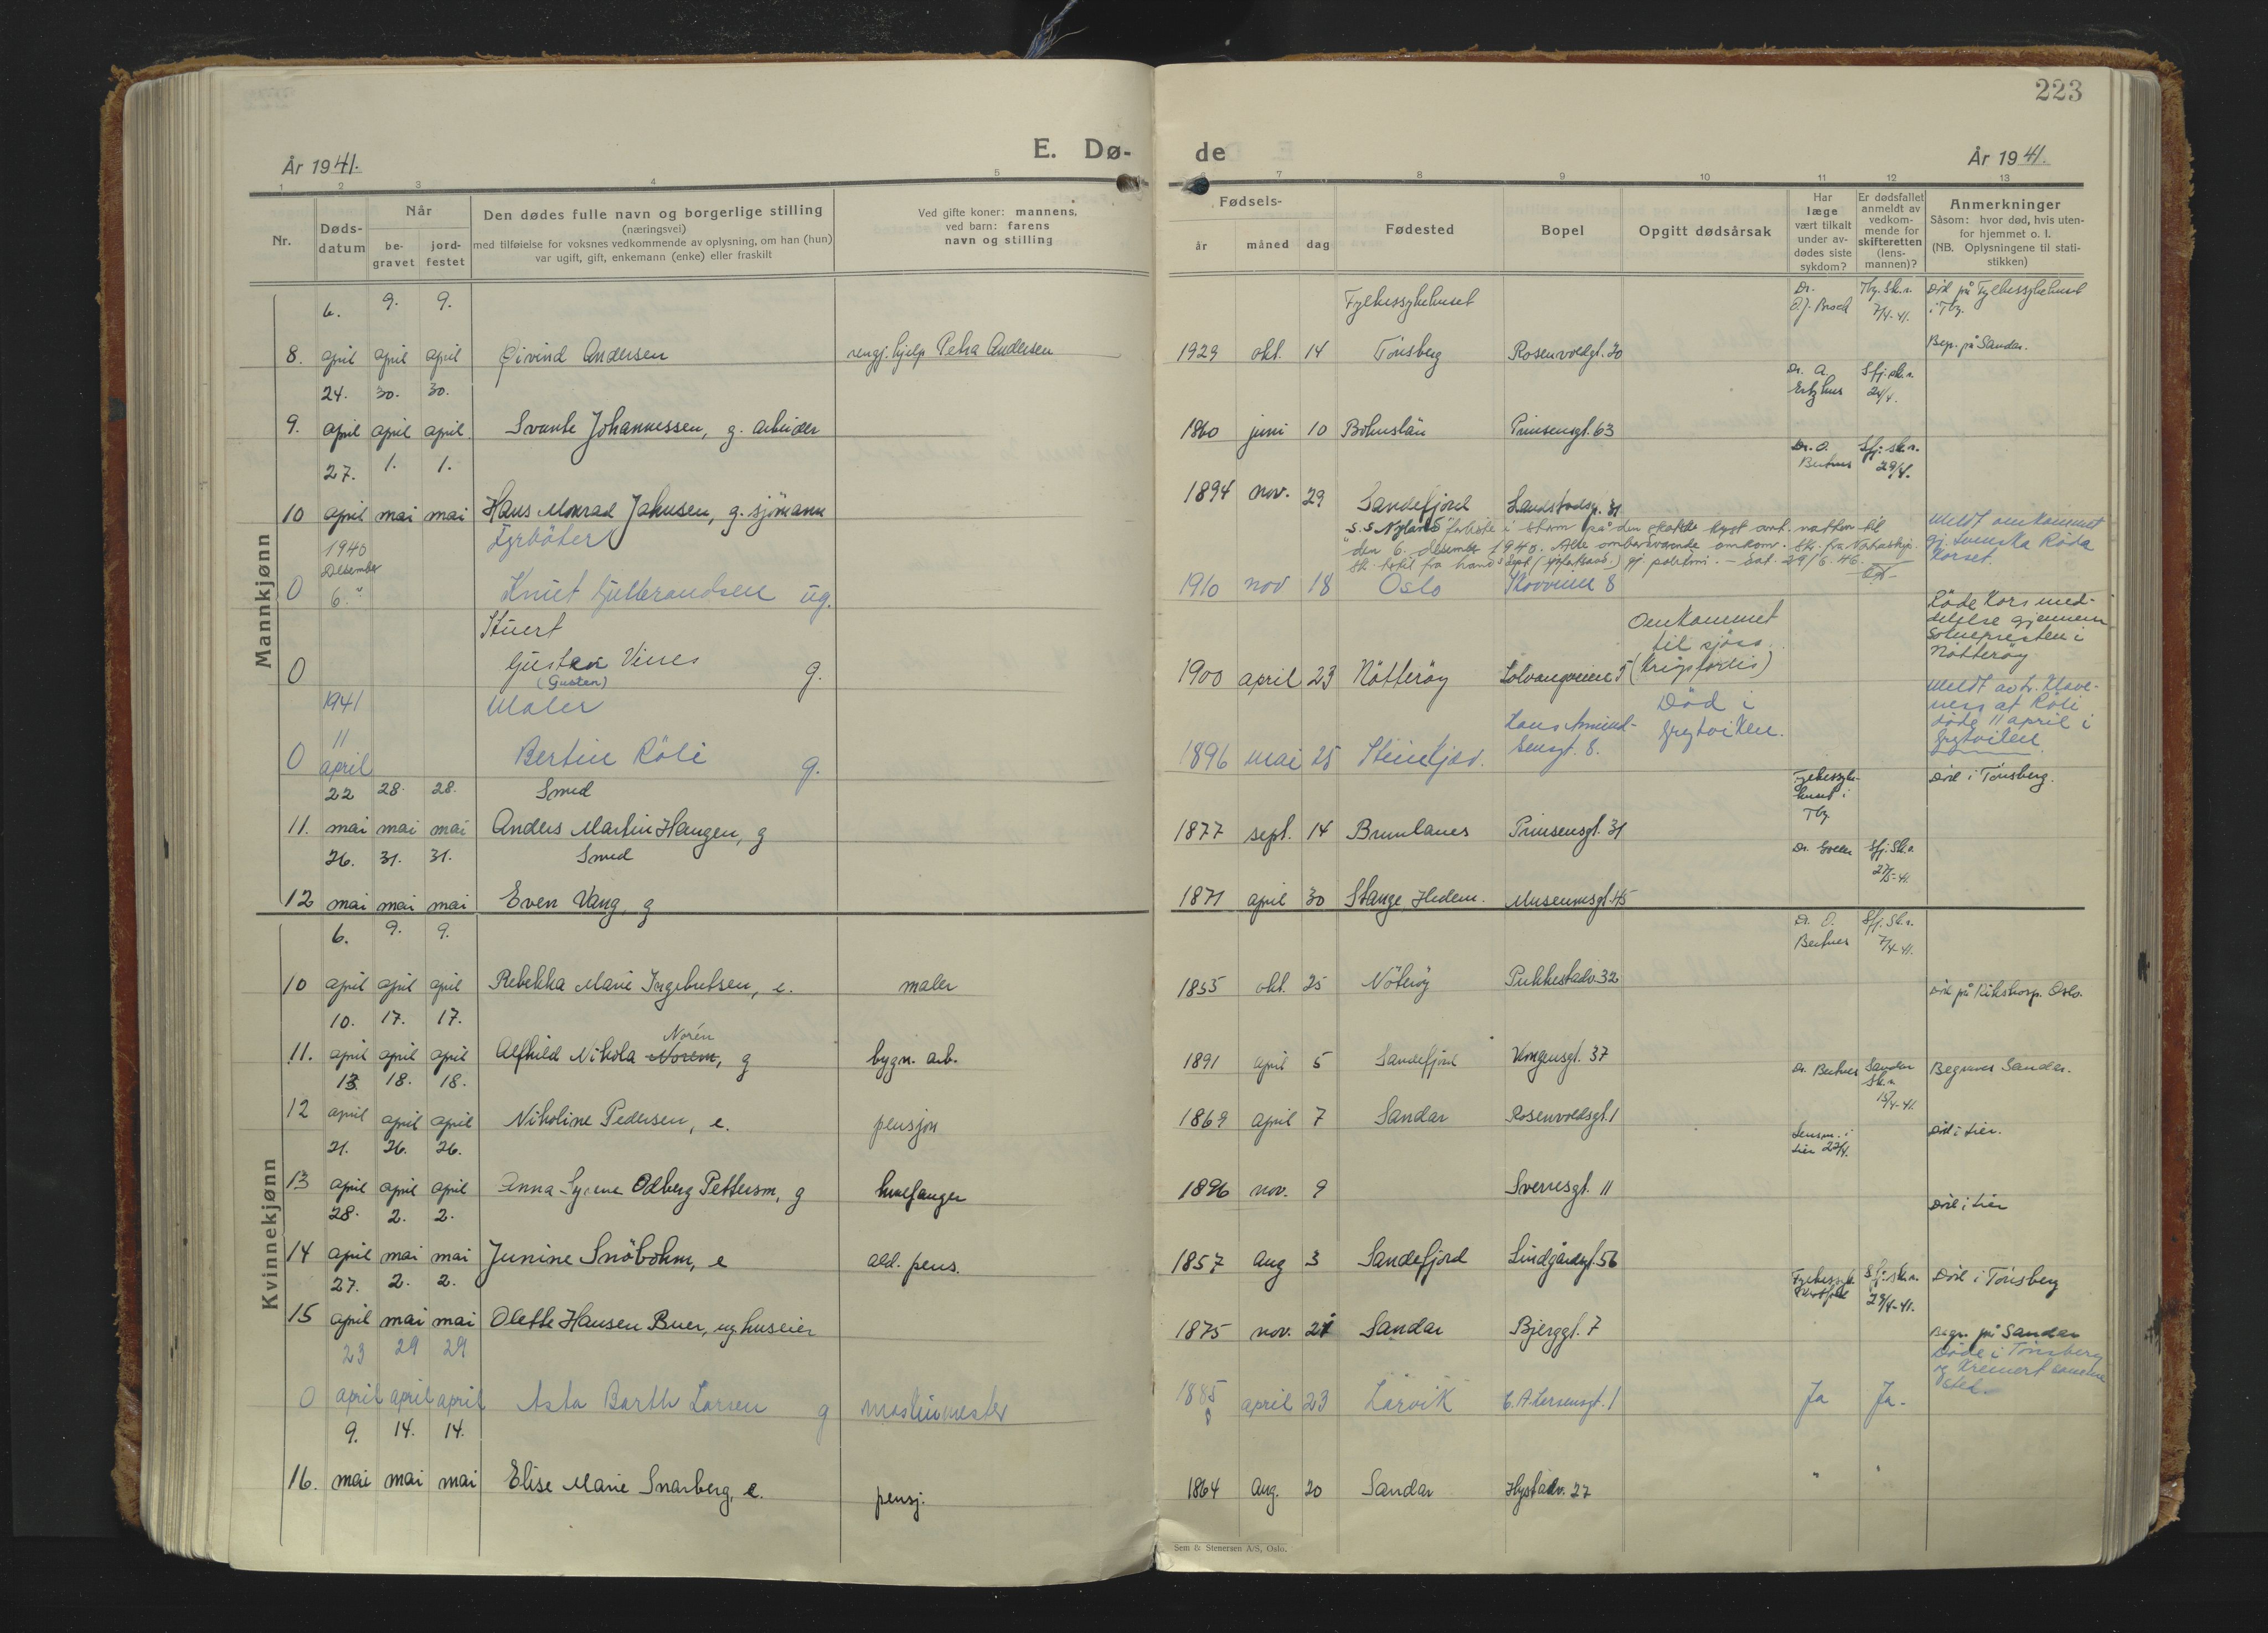 223
År 1941.
E. Dø-
de
År 1941.
1 2 3 4 5
7 8 9 10 11 12 13
Nr.
Døds-
datum
Når
be-
gravet
jord-
festet
Den dødes fulle navn og borgerlige stilling
(næringsvei)
med tilføielse for voksnes vedkommende av oplysning, om han (hun)
var ugift, gift, enkemann (enke) eller fraskilt
Ved gifte koner: mannens,
ved barn: farens
navn og stilling
Fødsels-
år måned dag
Fødested
Bopel
Opgitt dødsårsak
Har
læge
vært tilkalt
under av-
dødes siste
sykdom?
Er dødsfallet
anmeldt av
vedkom-
mende for
skifteretten
(lens-
mannen)?
Anmerkninger
Såsom: hvor død, hvis uten-
for hjemmet o. l.
(NB. Oplysningene til stati-
stikken)
Mannkjønn
6. 9. 9. Fylkessykehuset Dr. Tbg. Sk.r. Död på Fylkessykehuset
7/4-41. i Tbg.
8. april april april Øivind Andersen rengj. hjelp Petra Andersen 1929 okt. 14 Tönsberg Rosenvoldgt. 30 Begr. på Sandar.
24. 30. 30. Dr. A. Sfj. sk.r.
24/4.
9. april april april Svante Johannessen, g. arbeider 1860 juni 10 Bohuslän Prinsensgt. 63
27. 1. 1. Dr. O. Sfj. sk.r.
29/4.
10 april mai mai Hans Monrad Jahnsen, g. sjömann 1894 nov. 29 Sandefjord
1940 Fyrböter
Desember
S.S. Nyland forliste i storm på den skotske kyst ant. natten til
den 6. desember 1940. Alle ombordværende omkom.
Meldt omkommet
gj. Svenska Röda
Korset.
0 6. Knut Gulbrandsen ug. 1910 nov 18 Oslo Skovveien 8
Stuert
Omkommet
til sjöss
(Krigsforlis)
Röde Kors med-
delelse gjennem
Sognepresten i
Nötteröy
0 Gusten Vines g. 1900 april 23 Nötteröy Solvangveien 5
(Gusten)
1941 Maler
11
Död i
Grytviken.
Meldt av
at Röli
döde 11 april i
Grytviken
0 april Bertin Röli g. 1896 mai 25 Steinkjær.
22 28. 28. Smed Fylkessyke-
huset i
Tbg.
Död i Tönsberg.
11. mai mai mai Anders Martin Haugen, g 1877 sept. 14 Brunlanes Prinsensgt. 31
26. 31. 31. Smed Sfj. Sk.r.
27/5-41.
12 mai mai mai Even Vang, g 1871 april 30 Stange, Hedem. Museumsgt. 45
Kvinnekjønn
6. 9. 9. Dr. O. Sfj. Sk.r.
7/4-41.
10 april april april Rebekka Marie Ingebretsen, e. maler 1855 okt. 25 Nöteröy Pukkestadv. 32
10. 17. 17. Norén Död på Rikshosp. Oslo.
11. april april april Alfhild Nikola Norem, g bygn. arb. 1891 april 5 Sandefjord Kongensgt. 37
13 18. 18. Sandar
Sk.r.
15/4-41.
Begraves Sandar.
12 april april april Nikoline Pedersen, e. pensjon 1869 april 7 Sandar Rosenvoldsgt. 1
21. 26. 26. Lensm. i
Lier 22/4.
Död i Lier.
13 april april april Anna Odberg Pettersen, g hvalfanger 1896 nov. 9 Sverresgt. 11
28. 2. 2. Död i Lier
14 april mai mai Junine Snöbohm, e ald. pens. 1857 Aug 3 Sandefjord Lindgårdsgt. 56
27. 2. 2. Sfj. sk.r.
29/4-41.
Död i Tönsberg
15 april mai mai Olette Hansen Buer, ug huseier 1875 nov. 21 Sandar Bjerggt. 7
23 29 29 Begr. på Sandar
Döde i Tönsberg
og Kremert samme
sted.
0 april april april Asta Barth Larsen g maskinmester 1885 april 23 Larvik Ja Ja.
9. 14. 14.
16. mai mai mai Elise Marie Snarberg, e. pensj. 1864 Aug. 20 Sandar Hystadv. 27 " "
Sem & Stenersen A/S, Oslo.